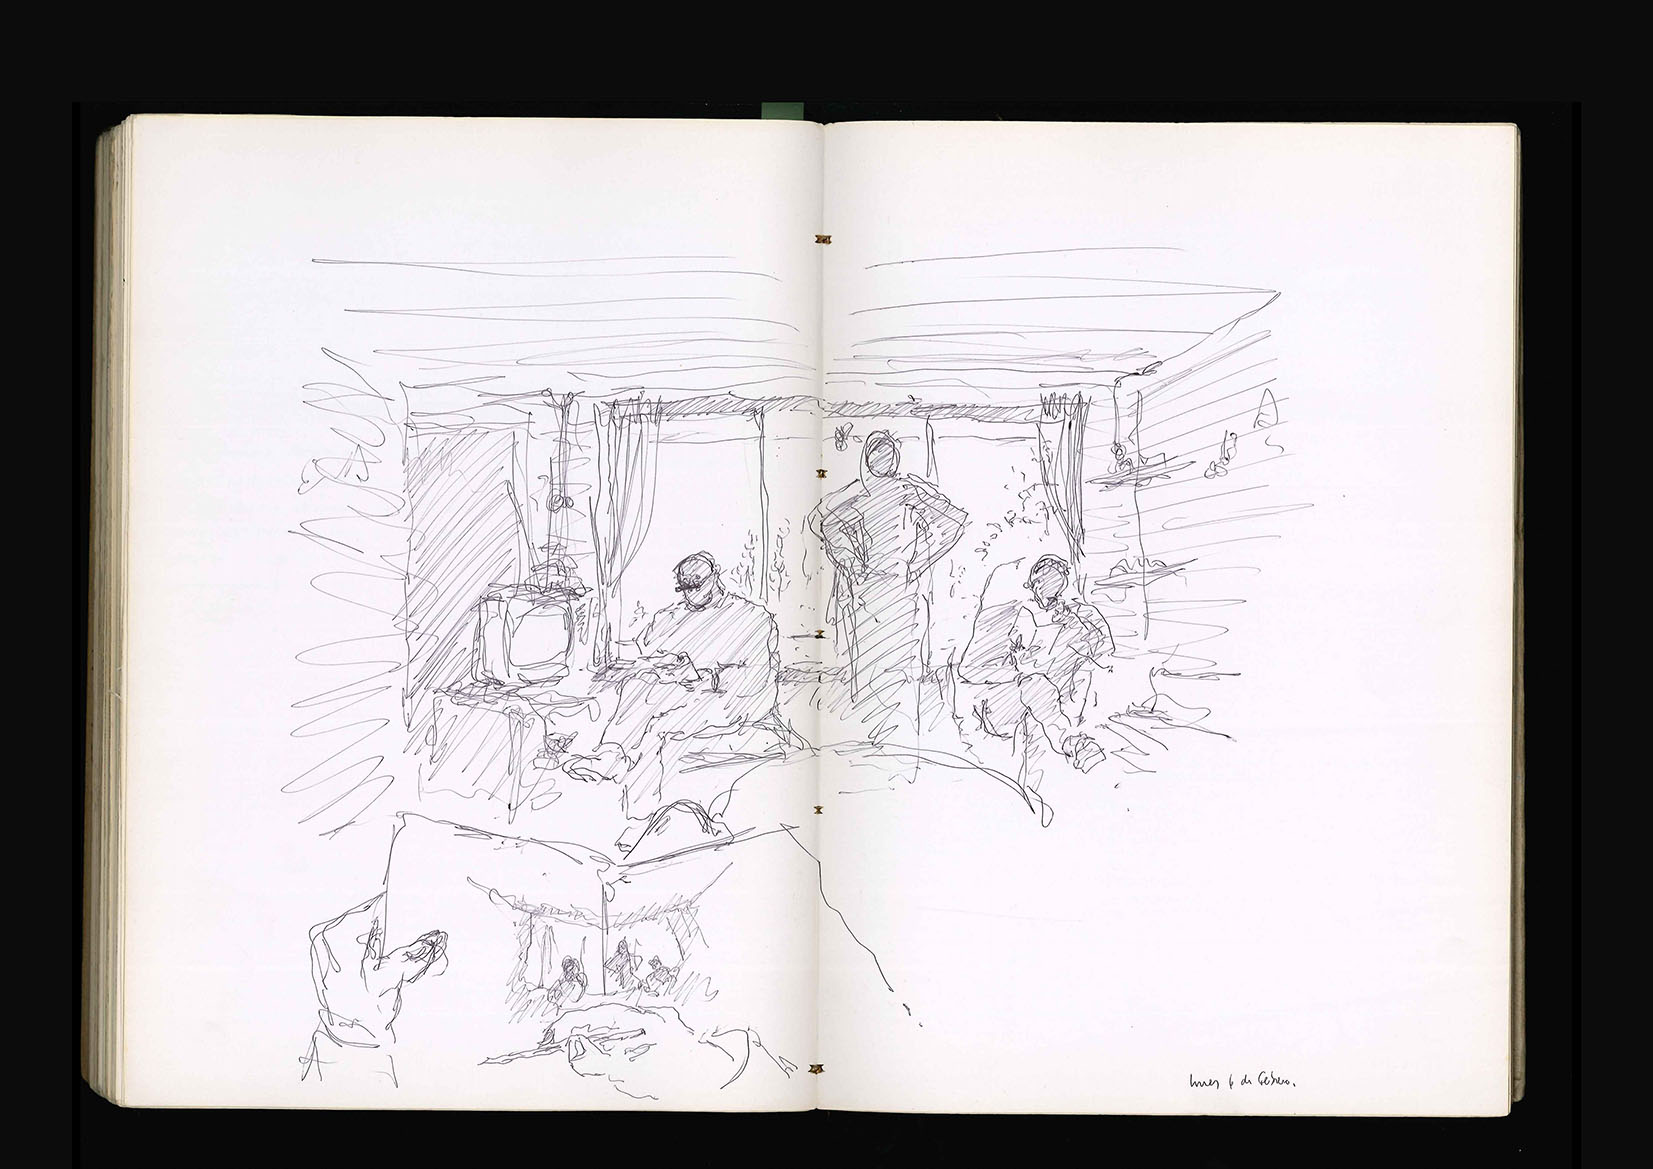 lunes 6 de febrero.